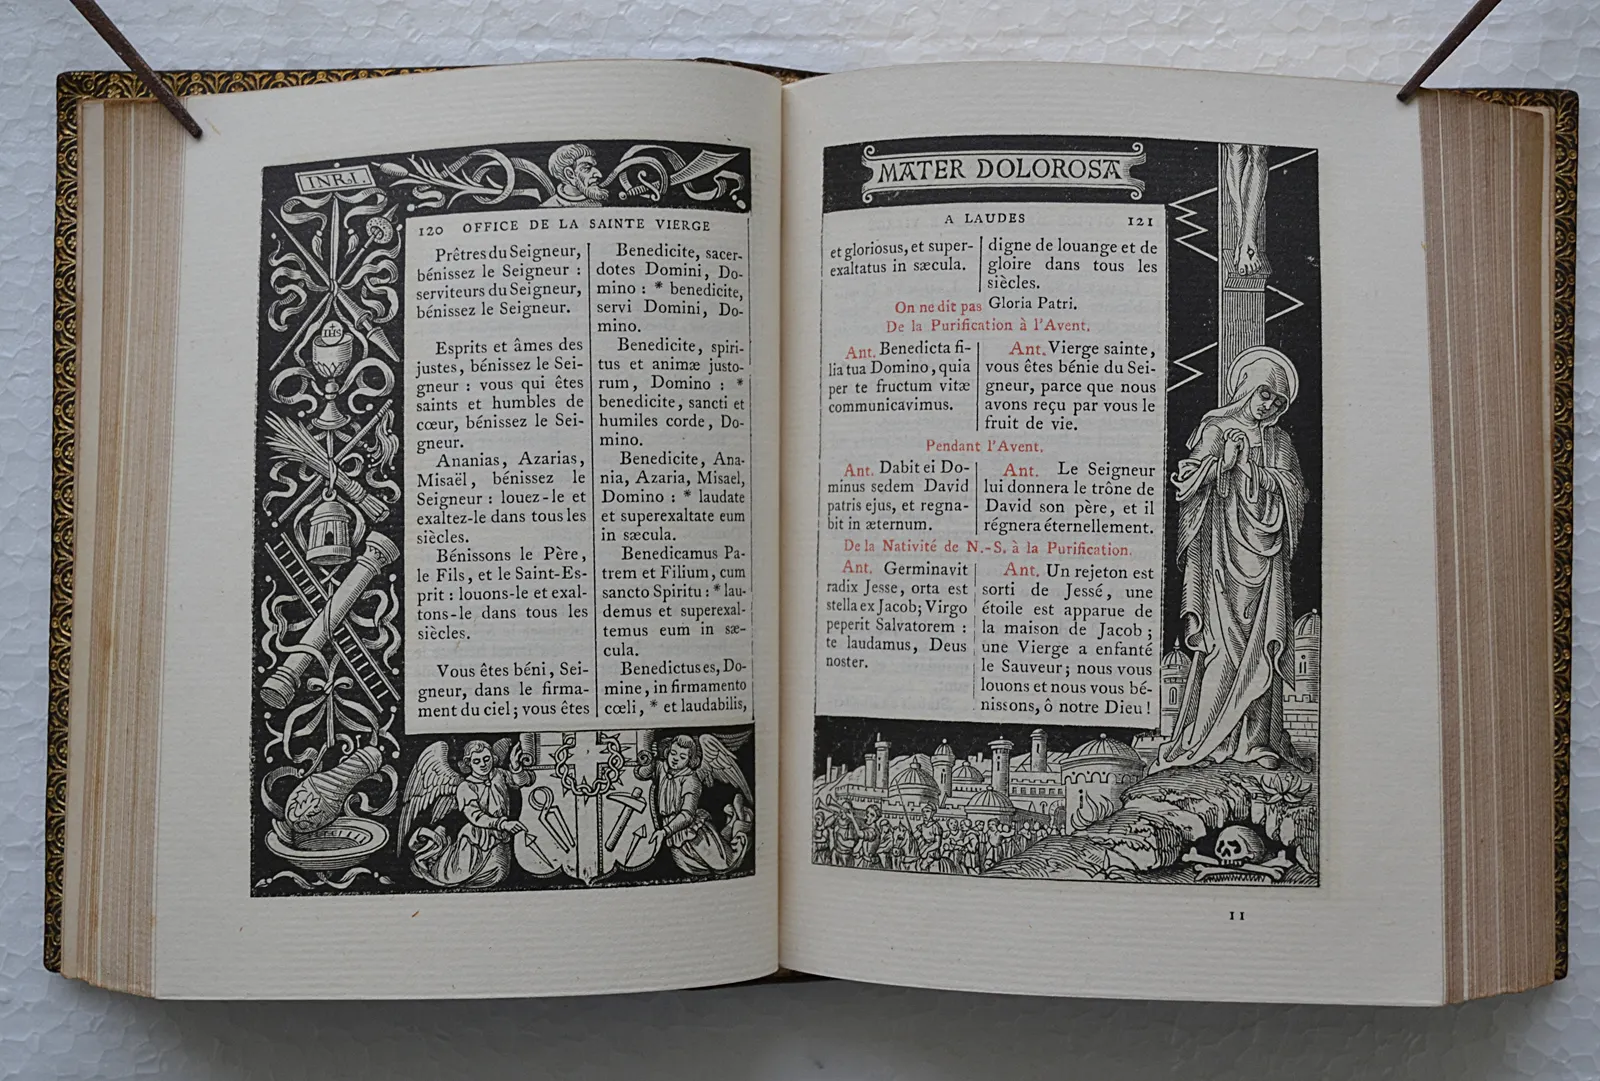 INRI.
120 OFFICE DE LA SAINTE VIERGE
Prêtres du Seigneur,
bénissez le Seigneur :
serviteurs du Seigneur,
bénissez le Seigneur.
Esprits et âmes des
justes, bénissez le Sei-
gneur : vous qui êtes
saints et humbles de
cœur, bénissez le Sei-
gneur.
Ananias, Azarias,
Misaël, bénissez le
Seigneur : louez-le et
exaltez-le dans tous les
siècles.
Bénissons le Père,
le Fils, et le Saint-Es-
prit : louons-le et exal-
tons-le dans tous les
siècles.
Vous êtes béni, Sei-
gneur, dans le firma-
ment du ciel; vous êtes
Benedicite, sacer-
dotes Domini, Do-
mino : * benedicite,
servi Domini, Do-
mino.
Benedicite, spiri-
tus et animæ justo-
rum, Domino : *
benedicite, sancti et
humiles corde, Do-
mino.
Benedicite, Ana-
nia, Azaria, Misael,
Domino : * laudate
et superexaltate eum
in sæcula.
Benedicamus Pa-
trem et Filium, cum
sancto Spiritu : * lau-
demus et superexal-
temus eum in sæ-
cula.
Benedictus es, Do-
mine, in firmamento
cœli, * et laudabilis,
IHS
MATER DOLOROSA
A LAUDES 121
et gloriosus, et super-
exaltatus in sæcula.
digne de louange et de
gloire dans tous les
siècles.
On ne dit pas Gloria Patri.
De la Purification à l'Avent.
Ant. Benedicta fi-
lia tua Domino, quia
per te fructum vitæ
communicavimus.
Ant. Vierge sainte,
vous êtes bénie du Sei-
gneur, parce que nous
avons reçu par vous le
fruit de vie.
Pendant l'Avent.
Ant. Dabit ei Do-
minus sedem David
patris ejus, et regna-
bit in æternum.
Ant. Le Seigneur
lui donnera le trône de
David son père, et il
régnera éternellement.
De la Nativité de N.-S. à la Purification.
Ant. Germinavit
radix Jesse, orta est
stella ex Jacob; Virgo
peperit Salvatorem :
te laudamus, Deus
noster.
Ant. Un rejeton est
sorti de Jessé, une
étoile est apparue de
la maison de Jacob ;
une Vierge a enfanté
le Sauveur; nous vous
louons et nous vous bé-
nissons, ô notre Dieu !
11